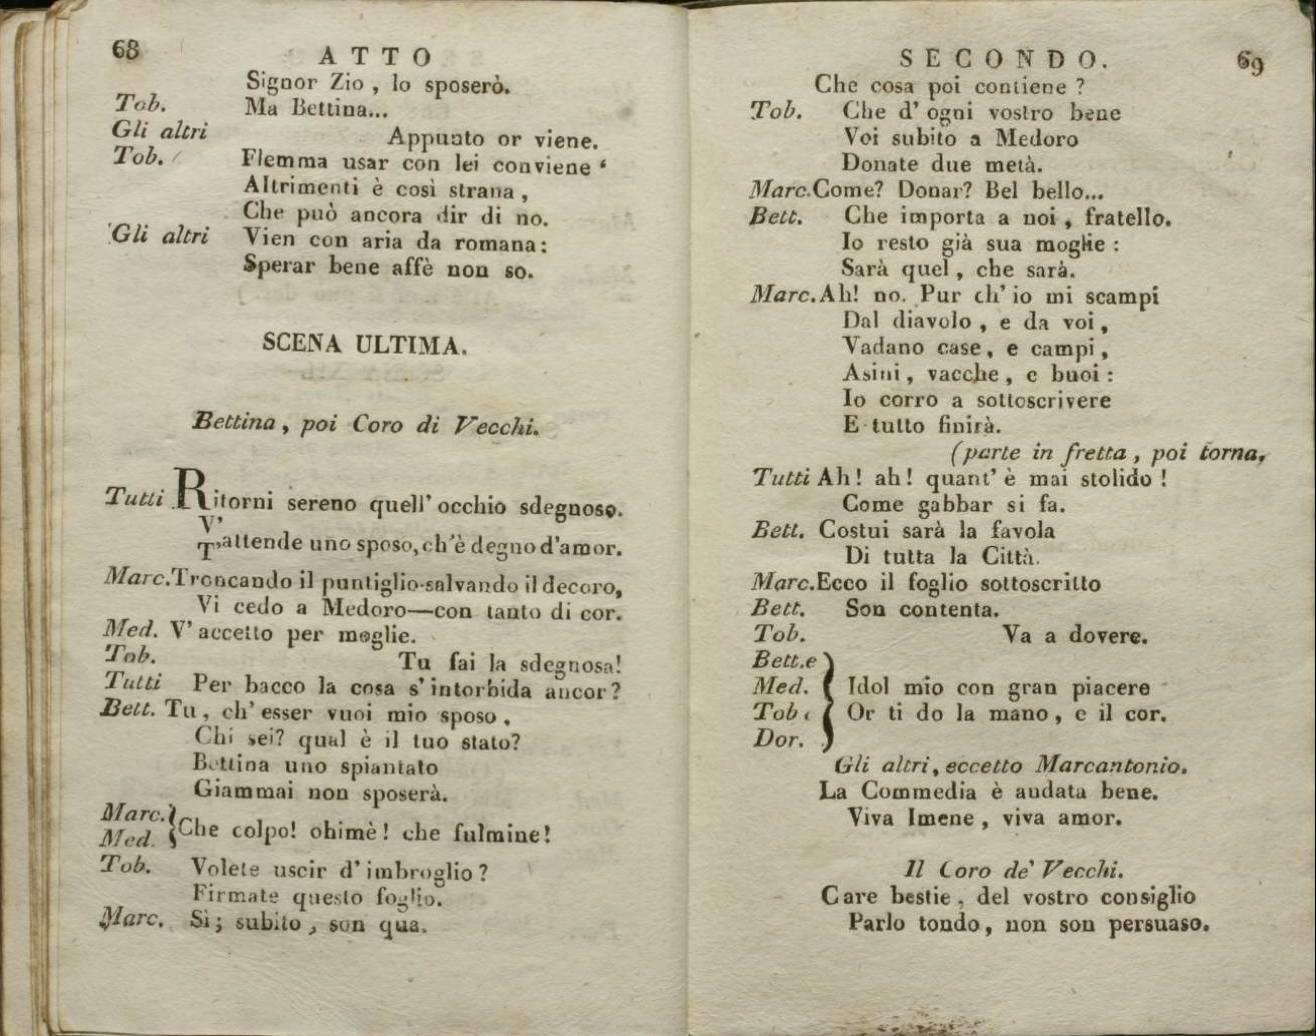 68
ATTO
Signor Zio, lo sposerò.
Tob. Ma Bettina...
Gli altri Appunto or viene.
Tob. Flemma usar con lei conviene
Altrimenti è così strana,
Che può ancora dir di no.
Gli altri Vien con aria da romana:
Sperar bene affè non so.
SCENA ULTIMA.
Bettina, poi Coro di Vecchi.
Tutti Ritorni sereno quell' occhio sdegnoso.
V'
T'attende uno sposo, ch'è degno d'amor.
Marc. Troncando il puntiglio-salvando il decoro,
Vi cedo a Medoro—con tanto di cor.
Med. V' accetto per moglie.
Tob. Tu fai la sdegnosa!
Tutti Per bacco la cosa s' intorbida ancor?
Bett. Tu, ch' esser vuoi mio sposo,
Chi sei? qual è il tuo stato?
Bettina uno spiantato
Giammai non sposerà.
Marc.
Med. } Che colpo! ohimè! che fulmine!
Tob. Volete uscir d' imbroglio?
Firmate questo foglio.
Marc. Sì; subito, son qua.
SECONDO.
69
Che cosa poi contiene?
Tob. Che d' ogni vostro bene
Voi subito a Medoro
Donate due metà.
Marc. Come? Donar? Bel bello...
Bett. Che importa a noi, fratello.
Io resto già sua moglie:
Sarà quel, che sarà.
Marc. Ah! no. Pur ch' io mi scampi
Dal diavolo, e da voi,
Vadano case, e campi,
Asini, vacche, e buoi:
Io corro a sottoscrivere
E tutto finirà.
(parte in fretta, poi torna.
Tutti Ah! ah! quant' è mai stolido!
Come gabbar si fa.
Bett. Costui sarà la favola
Di tutta la Città.
Marc. Ecco il foglio sottoscritto
Bett. Son contenta.
Tob. Va a dovere.
Bett.e
Med. } Idol mio con gran piacere
Tob. } Or ti do la mano, e il cor.
Dor.
Gli altri, eccetto Marcantonio.
La Commedia è andata bene.
Viva Imene, viva amor.
Il Coro de' Vecchi.
Care bestie, del vostro consiglio
Parlo tondo, non son persuaso.